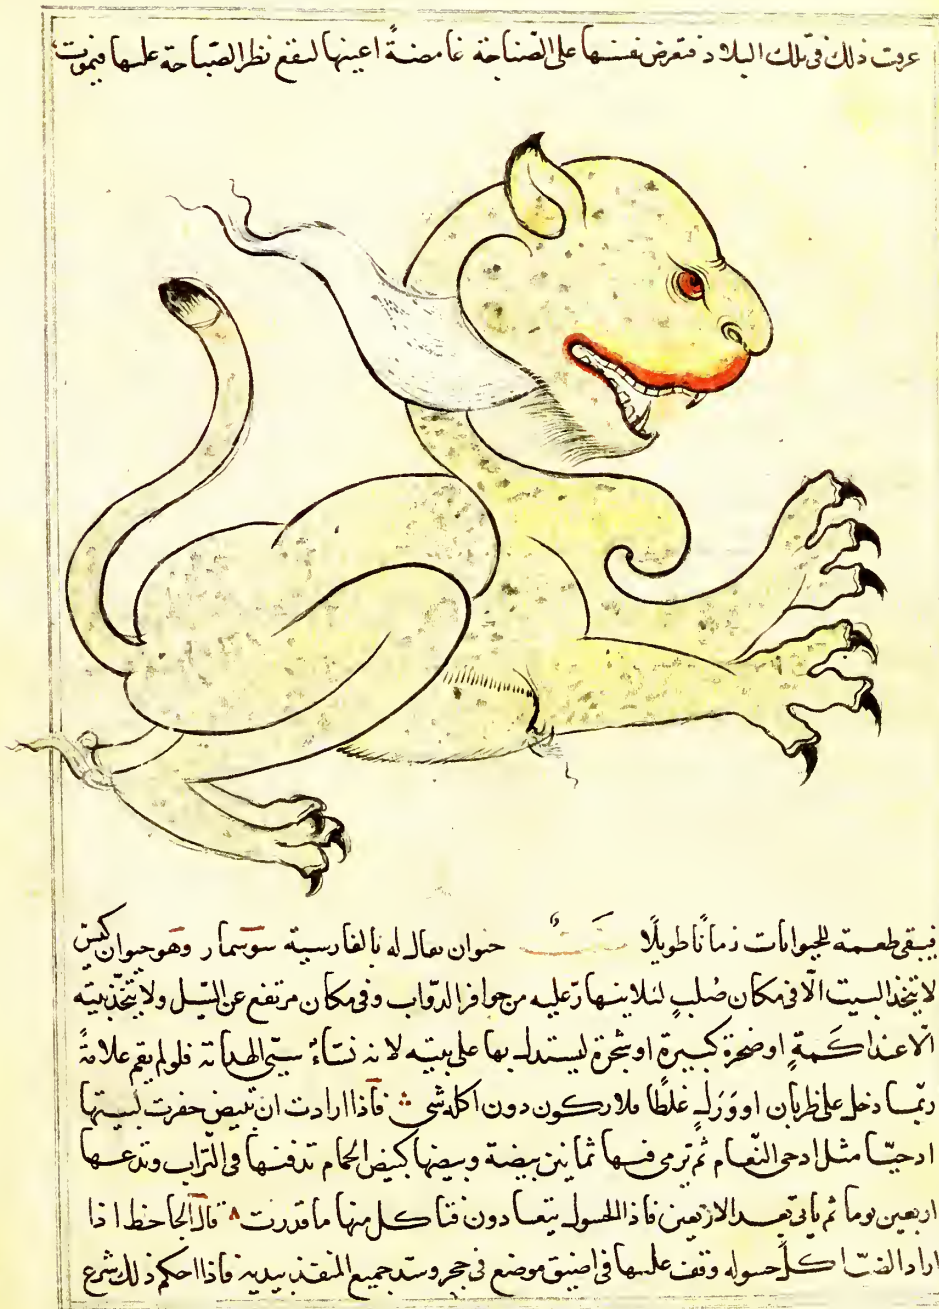 عرفت ذلك فى تلك البلاد فتعرض نفسها على الصناجة غامضةً اعينها ليقع نظر الصناجة عليها فيموت
فيبقى طعمة للحيوانات زماناً طويلاً ضبّ حيوان يقال له بالفارسية سوسمار وهو حيوان كيّس
لا يتخذ البيت الّا فى مكان صُلبٍ لئلا ينهار عليه من حوافر الدوّاب وفى مكان مرتفع عن السّيل ولا يتّخذ بيته
الّا عند اكَمةٍ او صخرة كبيرة او شجرة ليستدل بها على بيته لانه نسّاءٌ سيّئ الهداية فلو لم يقم علامةً
ربّما دخل على ظربان او وَرَلٍ غلطًا فلا يركون دون اكله شئ فاذا ارادت ان تبيض حفرت لبيتها
ادحيّا مثل ادحى النّعام ثم ترمى فيها ثمانين بيضة وبيضها كبيض الحمام تدفنها فى التراب وتدعها
اربعين يوما ثم ياتى بعد الاربعين فاذا الحسول يتعادون فتاكل منها ما قدرت قال الجاحظ اذا
اراد الضبّ اكل حسوله وقف عليها فى اضيق موضع فى جحر وسدّ جميع المنفذ بيديه فاذا احكم ذلك شرع